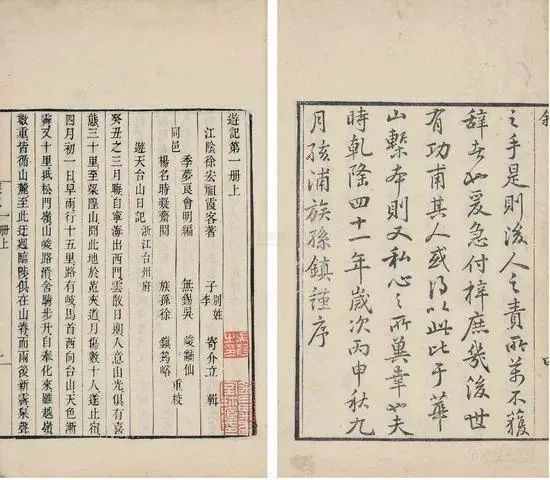 之手是則後人之責所萬不獲
辭者也爰急付梓庶幾後世
有功甫其人或得以此比于華
山槧本則又私心之所冀幸也夫
時乾隆四十一年歲次丙申秋九
月孩浦族孫鎮謹序
遊記第一冊上
江陰徐宏祖霞客著 子李別姓寄介立輯
季夢良會明編 無錫吳峻
同邑 重校
楊名時凝齋閱 族孫徐鎮筠峪
遊天台山日記 浙江台州府
癸丑之三月晦自寧海出西門雲散日朗人意山光俱有喜
態三十里至梁隍山聞此地於菟夾道月傷數十人遂止宿
四月初一日早雨行十五里路有岐馬首西向台山天色漸
霽又十里抵松門嶺山峻路滑舍騎步行自奉化來雖越嶺
數重皆循山麓至此迂迴臨陟俱在山脊而雨後新霽泉聲